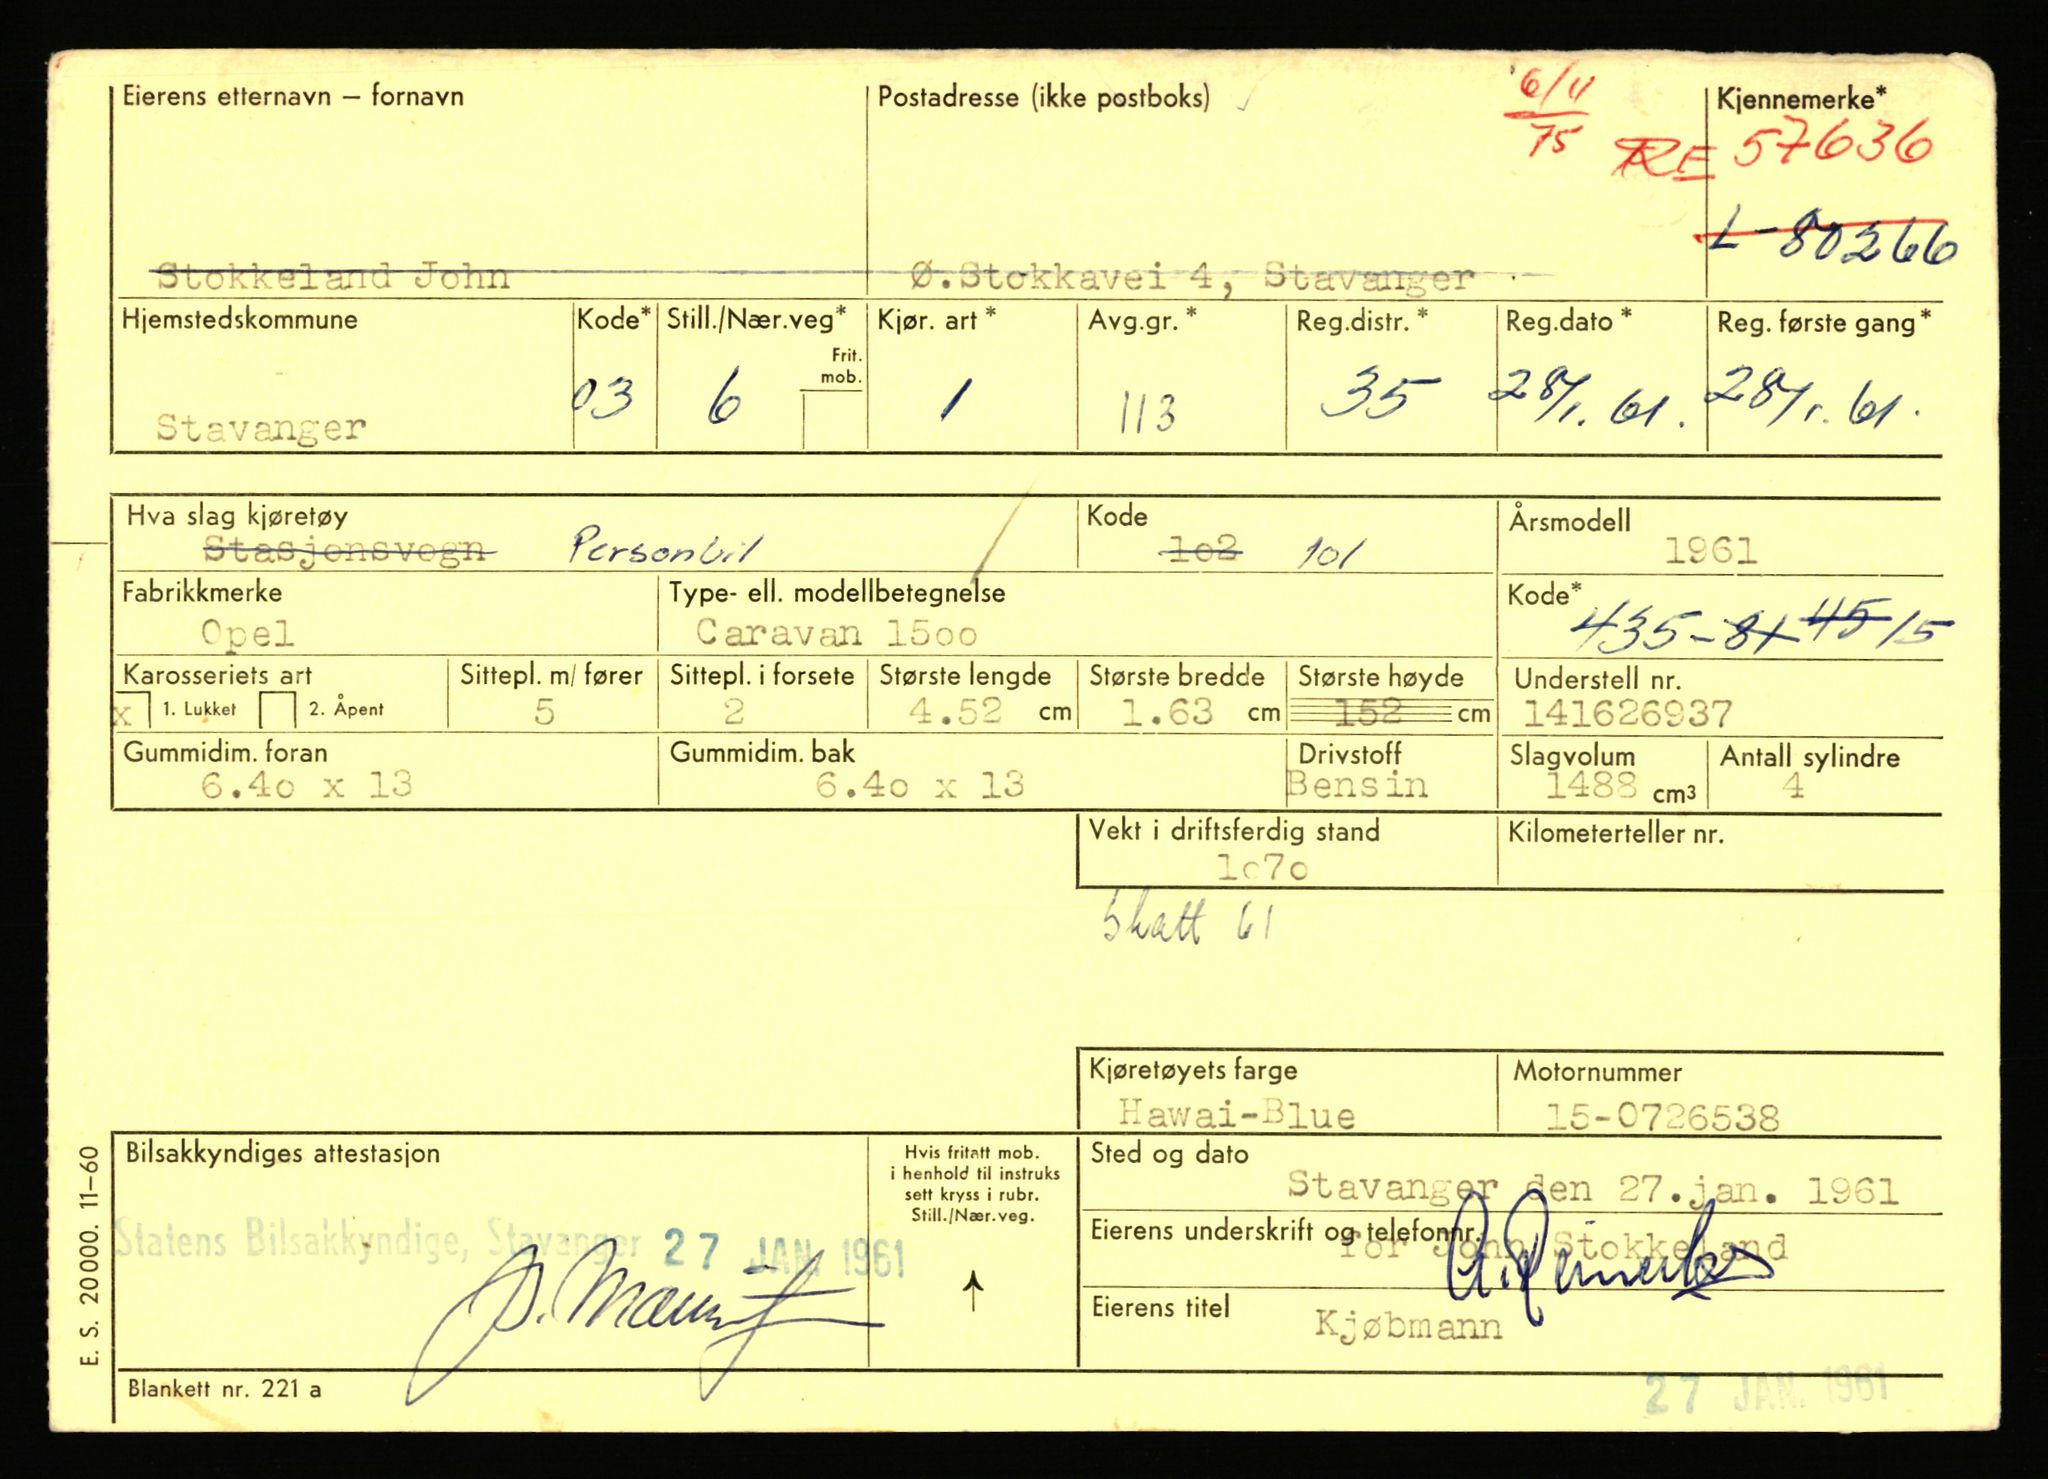 Eierens etternavn – fornavn
Postadresse (ikke postboks)
6/11
75
Kjennemerke*
RE 57636
L-80266
Stokkeland John
Ø.Stokkavei 4, Stavanger
Hjemstedskommune Kode* Still./Nær.veg* Kjør. art* Avg.gr.* Reg.distr.* Reg.dato* Reg. første gang*
Frit.
mob.
Stavanger 03 6 1 113 35 28/1. 61. 28/1. 61.
Hva slag kjøretøy Kode Årsmodell
Stasjonsvogn Personbil 1o2 101 1961
Fabrikkmerke Type- ell. modellbetegnelse Kode*
Opel Caravan 15oo 435-81 45 15
Karosseriets art Sittepl. m/ fører Sittepl. i forsete Største lengde Største bredde Største høyde Understell nr.
x 1. Lukket 2. Åpent 5 2 4.52 cm 1.63 cm 152 cm 141626937
Gummidim. foran Gummidim. bak Drivstoff Slagvolum Antall sylindre
6.4o x 13 6.4o x 13 Bensin 1488 cm3 4
Vekt i driftsferdig stand Kilometerteller nr.
1o7o
Skatt 61
Kjøretøyets farge Motornummer
Hawai-Blue 15-0726538
Bilsakkyndiges attestasjon
Hvis fritatt mob.
i henhold til instruks
sett kryss i rubr.
Still./Nær.veg.
Sted og dato
Stavanger den 27.jan. 1961
Statens Bilsakkyndige, Stavanger 27 JAN. 1961
Eierens underskrift og telefonnr.
for John Stokkeland
Eierens titel
Kjøbmann
E. S. 20000. 11-60
Blankett nr. 221 a
27 JAN. 1961